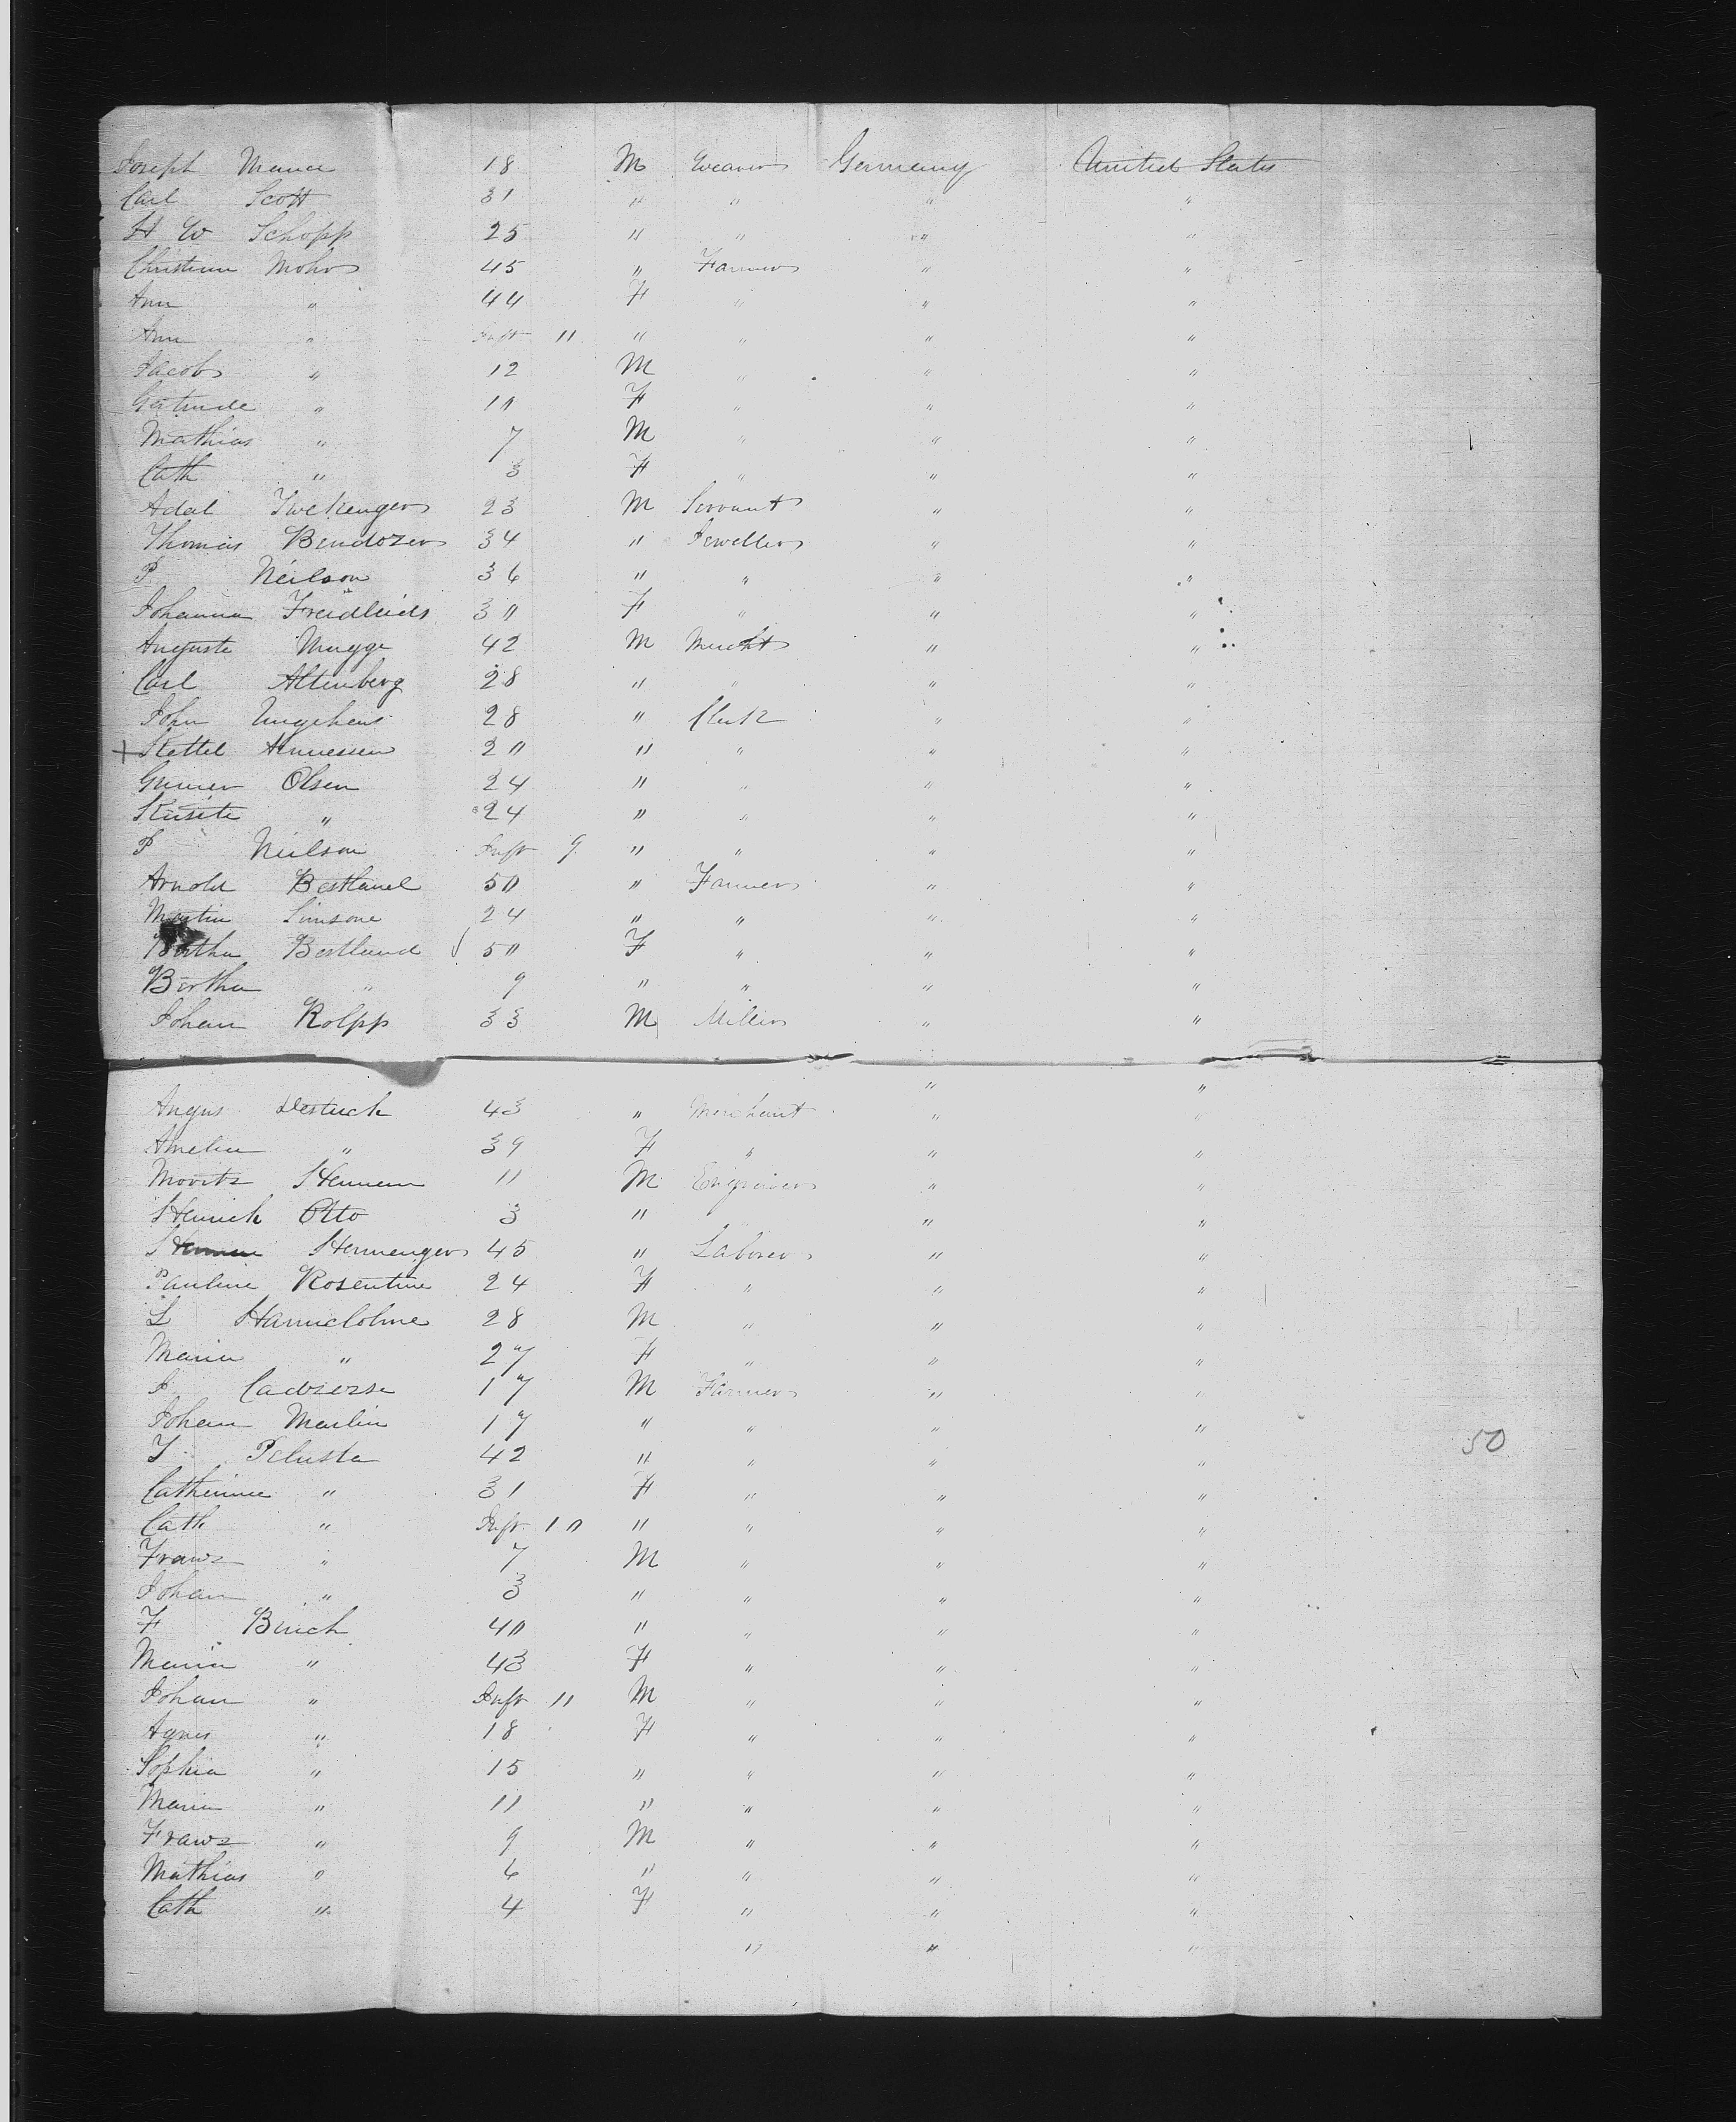 Joseph 18 M Weaver Germany United States
Carl Scott 31 " " " "
H W Schopp 25 " " " "
Christian Mohr 45 " Farmer " "
Ann " 44 F " " "
Ann " Inft 11 " " " "
Jacob " 12 M " " "
Gertrude " 10 F " " "
Mathias " 7 M " " "
Cath " 3 F " " "
Adal 23 M Servant " "
Thomas Bendozer 34 " Jeweller " "
P Neilson 36 " " " "
Johanna 30 F " " "
Auguste Mugge 42 M Mercht " "
Carl Altenberg 28 " " " "
John 28 " Clerk " "
+ Kettel 20 " " " "
Gunner Olsen 24 " " " "
" 24 " " " "
P Neilson Inft 9 " " " "
Arnold 50 " Farmer " "
Martin Simsone 24 " " " "
Bertha Bestland 50 F " " "
Bertha " 9 " " " "
Johan Rolpp 33 M Miller " "
" "
Angus 43 " Merchant " "
Amelia " 39 F " " "
Movitz Hermann 11 M Engraver " "
Heinrich Otto 3 " " "
Hermenger 45 " Laborer " "
Pauline Rosentine 24 F " " "
L 28 M " " "
Maria " 27 F " " "
J 17 M Farmer " "
Johan Marlin 17 " " " "
Pelusta 42 " " " " 50
Catherinne " 31 F " " "
Cath " Inft 10 " " " "
Franz " 7 M " " "
Johan " 3 " " " "
F Birich 40 " " " "
Maria " 43 F " " "
Johan " Inft 11 M " " "
Agnes " 18 F " " "
Sophia " 15 " " " "
Maria " 11 " " " "
Franz " 9 M " " "
Mathias " 6 " " " "
Cath " 4 F " " "
" " "